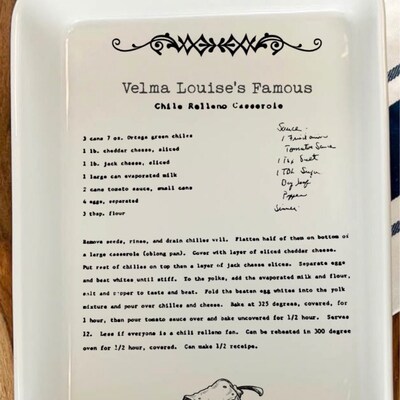 Velma Louise's Famous
Chile Relleno Casserole
3 cans 7 oz. Ortega green chiles
1 lb. cheddar cheese, sliced
1 lb. jack cheese, sliced
1 large can evaporated milk
2 cans tomato sauce, small cans
4 eggs, separated
3 tbsp. flour
Sauce
1 Fried onion
Tomatoe Sauce
1 tsp Salt
1 Tbl Sugar
Bay leaf
Pepper
Simmer
Remove seeds, rinse, and drain chilies well. Flatten half of them on bottom of
a large casserole (oblong pan). Cover with layer of sliced cheddar cheese.
Put rest of chilies on top then a layer of jack cheese slices. Separate eggs
and beat whites until stiff. To the yolks, add the evaporated milk and flour,
salt and pepper to taste and beat. Fold the beaten egg whites into the yolk
mixture and pour over chilies and cheese. Bake at 325 degrees, covered, for
1 hour, than pour tomato sauce over and bake uncovered for 1/2 hour. Serves
12. Less if everyone is a chili relleno fan. Can be reheated in 300 degree
oven for 1/2 hour, covered. Can make 1/2 receipe.